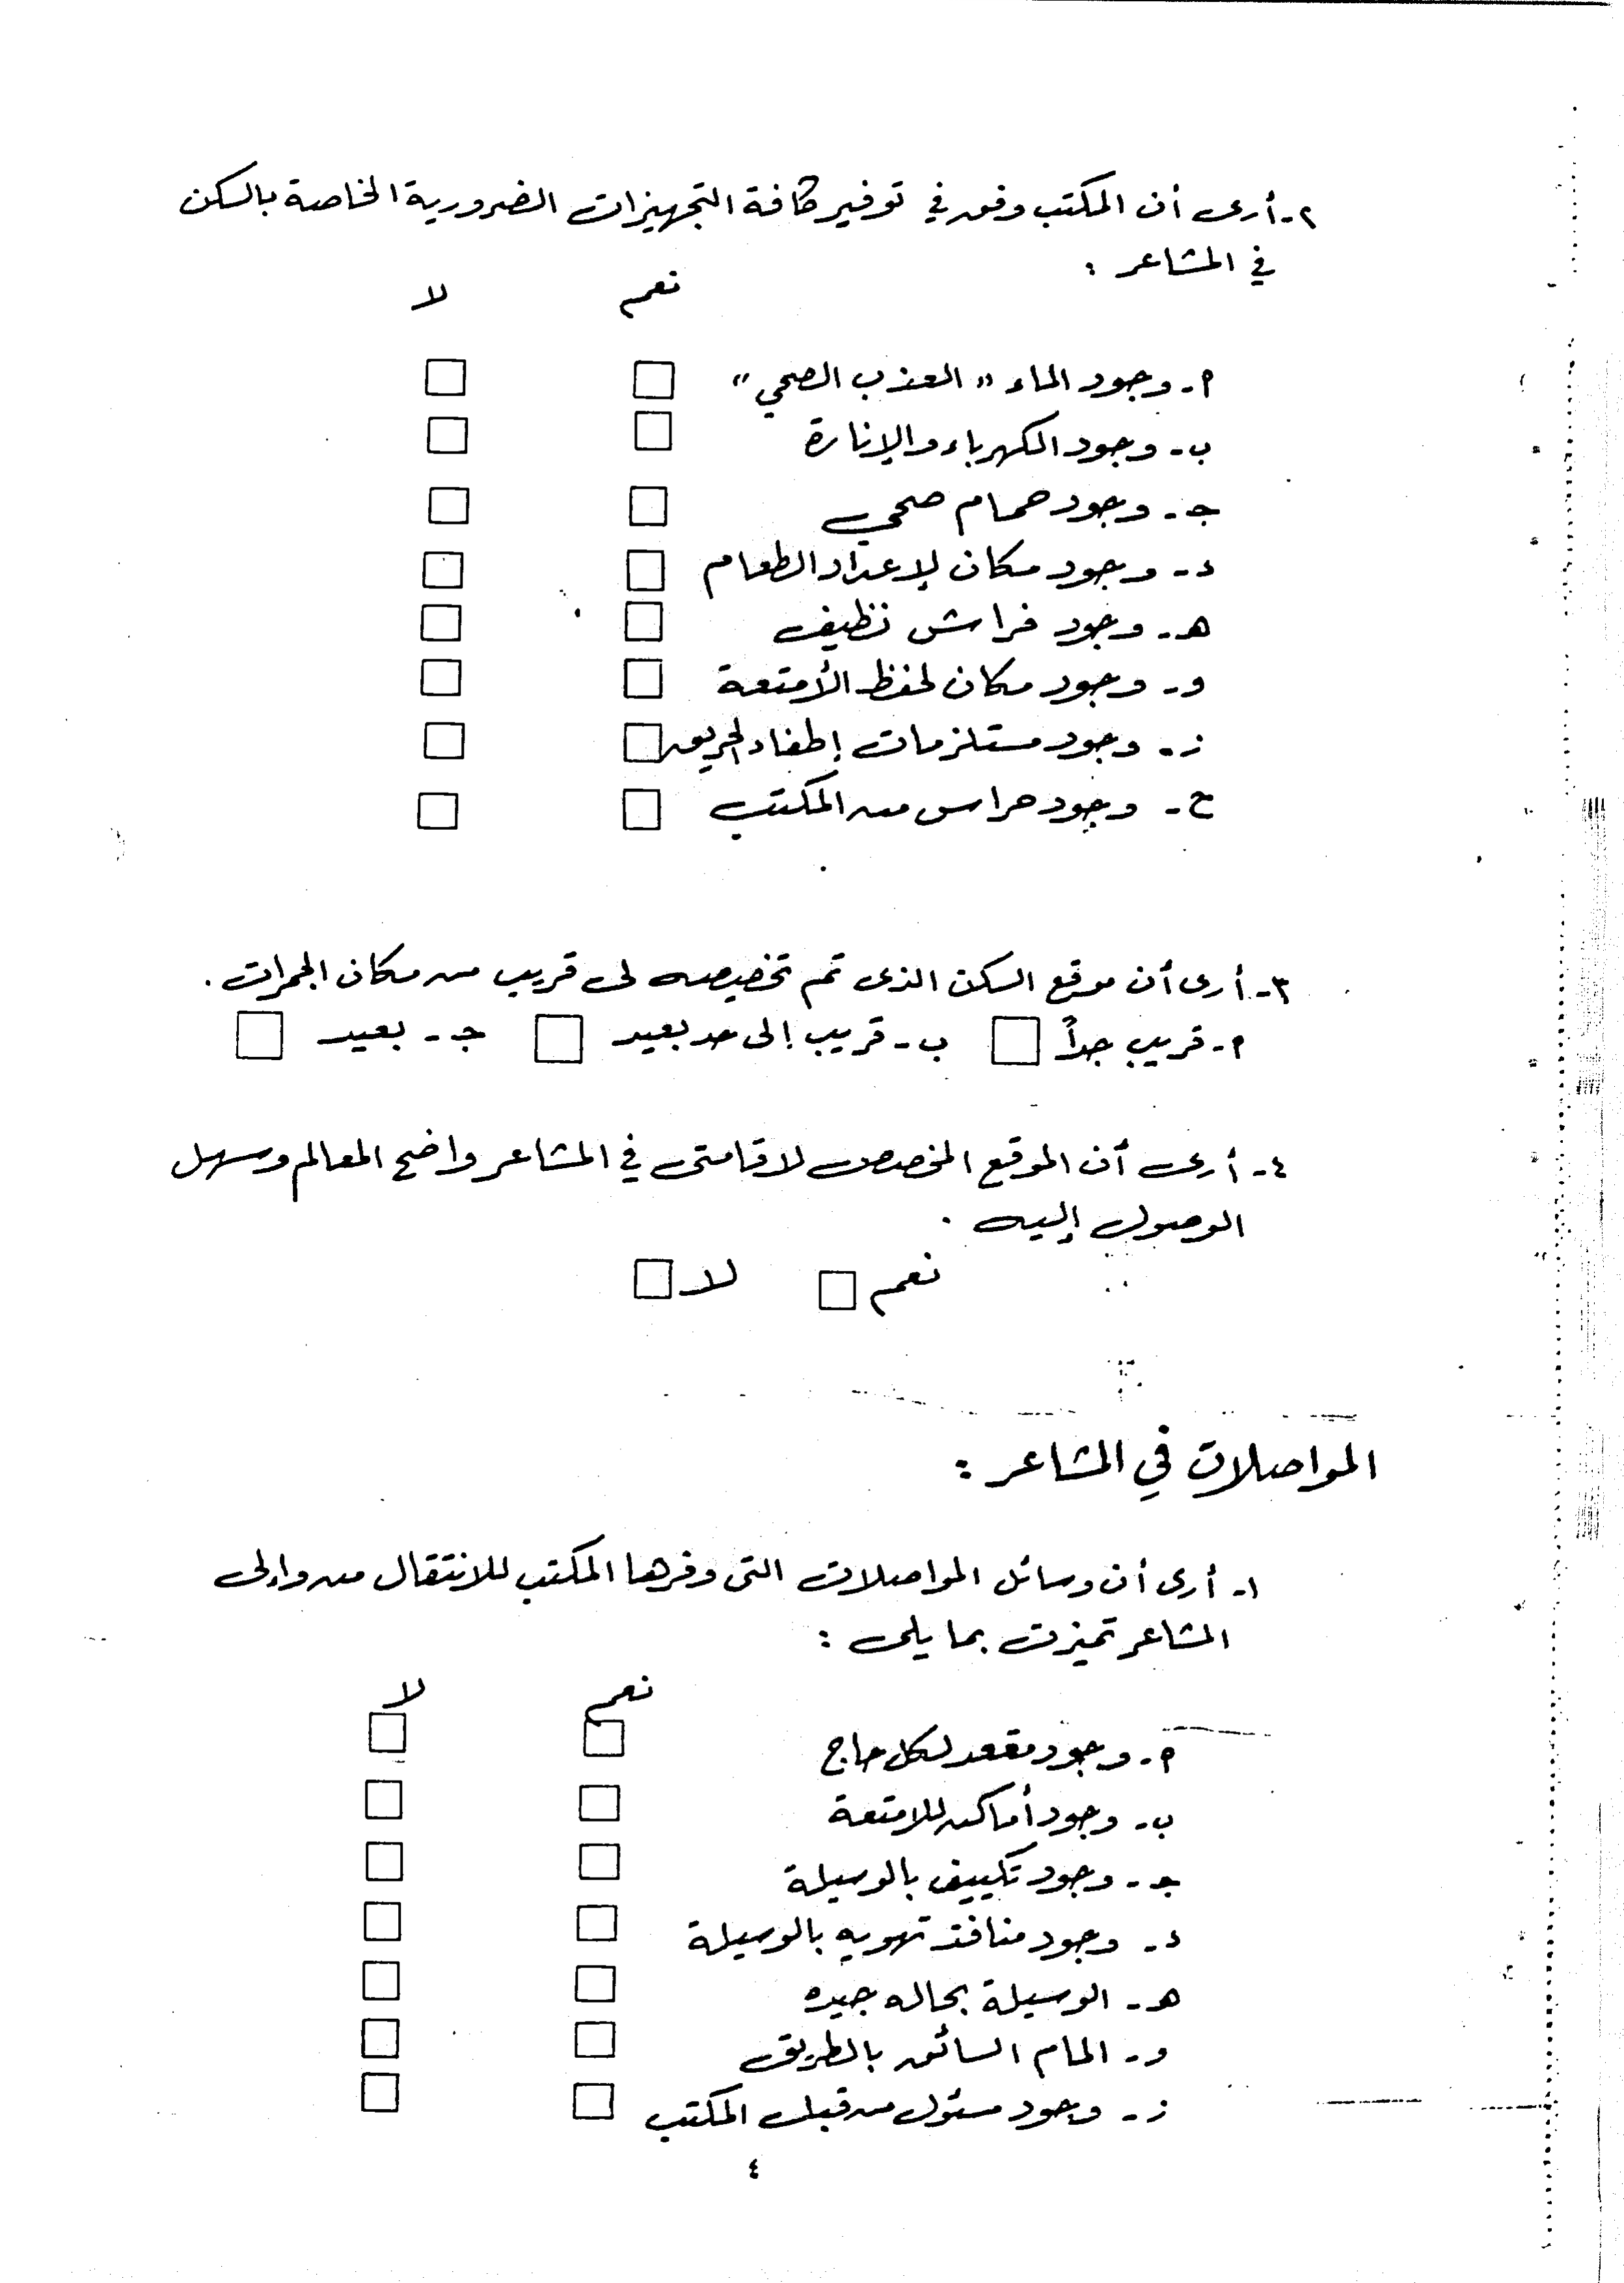 ٢- أرى أن المكتب وفق في توفير كافة التجهيزات الضرورية الخاصة بالسكن
في المشاعر :
نعم لا
أ- وجود الماء " العذب الصحي " □ □
ب- وجود الكهرباء والإنارة □ □
جـ- وجود حمام صحي □ □
د- وجود مكان لإعداد الطعام □ □
هـ- وجود فراش نظيف □ □
و- وجود مكان لحفظ الأمتعة □ □
ز- وجود مستلزمات إطفاء الحريق □ □
ح- وجود حراس من المكتب □ □
٣- أرى أن موقع السكن الذى تم تخصيصه لى قريب من مكان الجمرات .
أ- قريب جداً □ ب- قريب إلى حد بعيد □ جـ- بعيد □
٤- أرى أن الموقع المخصص لاقامتى في المشاعر واضح المعالم وسهل
الوصول إليه .
نعم □ لا □
المواصلات في المشاعر :
١- أرى أن وسائل المواصلات التى وفرها المكتب للانتقال من وإلى
المشاعر تميزت بما يلى :
نعم لا
أ- وجود مقعد لكل حاج □ □
ب- وجود أماكن للامتعة □ □
جـ- وجود تكييف بالوسيلة □ □
د- وجود منافذ تهويه بالوسيلة □ □
هـ- الوسيلة بحاله جيده □ □
و- المام السائق بالطريق □ □
ز- وجود مسئول من قبل المكتب □ □
٤